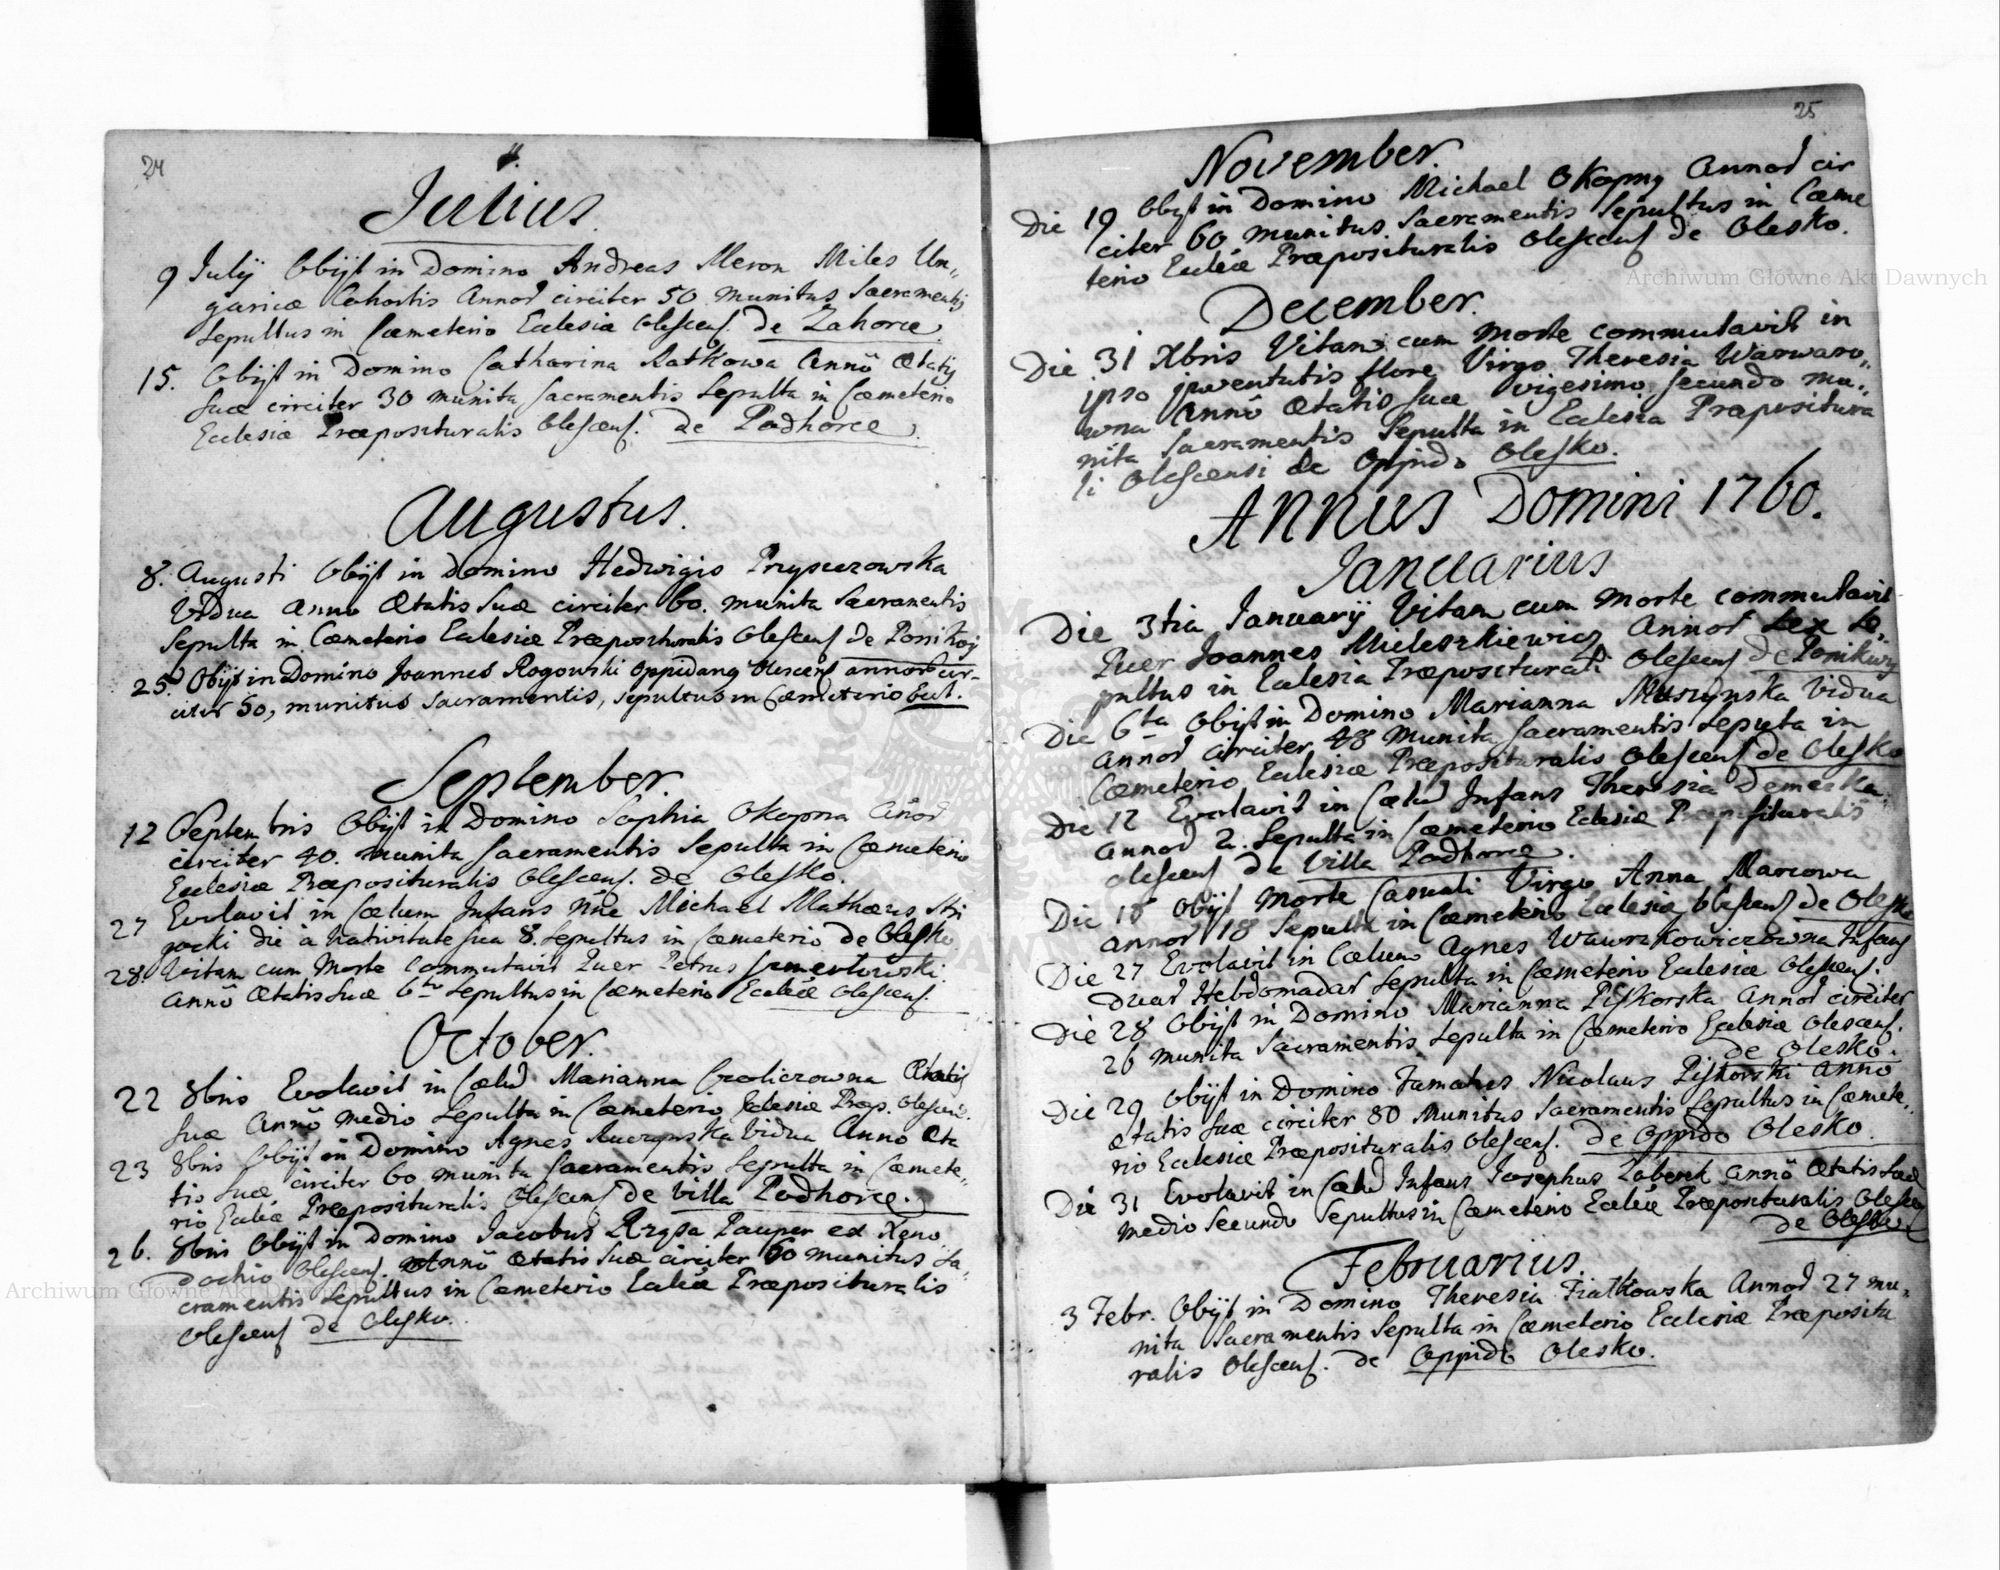 24
Julius.
9 Julij Obijt in Domino Andreas Meron Miles Un„
garicæ Cohortis Annor circiter 50 munitus Sacramentis
Sepultus in Cæmeterio Ecclesiæ Olescens. de Zahorce.
15. Obijt in Domino Catharina Ratkowa Annô Ætatis
suæ circiter 30 munita Sacramentis Sepulta in Cæmeterio
Ecclesiæ Præposituralis Olescens. de Podhorce.
Augustus.
8. Augusti Obijt in Domino Hedwigis
Vidua Anno Ætatis Suæ circiter 60. munita Sacramentis
Sepulta in Cæmeterio Ecclesiæ Præposituralis Olescens de
25. Obijt in Domino Joannes Rogowski oppidanus Olescens annor cir-
citer 50, munitus Sacramentis, sepultus in Cæmeterio Eccl.
September.
12 Septembris Obijt in Domino Sophia Okopna Añor
circiter 40. munita Sacramentis Sepulta in Cæmeterio
Ecclesiæ Præposituralis Olescens. de Olesko.
27 Evolavit in Cælum Infans Nñe Michael Mathæus
die à Nativitate sua 8. Sepultus in Cæmeterio de Olesko
28. Vitam cum Morte Commutavit Puer Petrus
Annô Ætatis Suæ 6to Sepultus in Cæmeterio Eccliæ Olescens.
October.
22 8bris Evolavit in Cælū Marianna Ætatis
Suæ Annô medio Sepulta in Cæmeterio Eclesiæ Præp. Olescens.
23 8bris Obijt in Domino Agnes Vidua Anno Æta
tis Suæ circiter 60 munita Sacramentis Sepulta in Cæmete„
rio Eccliæ Præposituralis Olescens de Villa Podhorce.
26. 8bris Obijt in Domino Jacobus Pauper ex Xeno„
dochio Olescens. Annô Ætatis Suæ circiter 60 munitus Sa„
cramentis Sepultus in Cæmeterio Eccliæ Præposituralis
Olescens de Olesko.
25
November.
Die 19 Obijt in Domino Michael Okopny Annor cir
citer 60 munitus Sacramentis Sepultus in Cæme
terio Eccliæ Præposituralis Olescens de Olesko.
December.
Die 31 Xbris Vitam cum Morte commutavit in
ipso juventutis flore Virgo Theresia Warwaro„
wna Annô Ætatis Suæ vigesimo secundo mu„
nita Sacramentis Sepulta in Ecclesia Præpositura
li Olescensi de Oppido Olesko.
Annus Domini 1760.
Januarius
Die 3tia Januarij Vitam cum Morte commutavit
Puer Joannes Mieleszkiewicz Annor sex Se„
pultus in Eclesia Præposituralí Olescens de Ponikwy
Die 6ta Obijt in Domino Marianna Muszynska Vidua
Annor circiter 48 Munita Sacramentis Sepulta in
Cæmeterio Eclesiæ Præposituralis Olescens de Olesko
Die 12 Evolavit in Cælū Infans Theresia Demerka
annor 2. Sepulta in Cæmeterio Eclesiæ Præposituralis
Olescens de Villa Podhorce.
Die 18 Obijt Morte Casuali Virgo Anna Marcowa
Annor 18 Sepulta in Cæmeterio Ecclesiæ Olescens de Olesko
Die 27 Evolavit in Cælum Agnes Wawrzkowiczowna Infans
duar Hebdomadar Sepulta in Cæmeterio Ecclesiæ Olescens.
Die 28 Obijt in Domino Marianna Piskorska Annor circiter
26 munita Sacramentis Sepulta in Cæmeterio Ecclesiæ Olescens.
de Olesko.
Die 29 Obijt in Domino Famatus Nicolaus Piskorski Anno
Ætatis Suæ circiter 80 Munitus Sacramentis Sepultus in Cæmete„
rio Ecclesiæ Præposituralis Olescens. de Oppido Olesko
Die 31 Evolavit in Cælū Infans Josephus Annô Ætatis Suæ
medio Secundo Sepultus in Cæmeterio Eccliæ Præposituralis Olescens
de Olesko
Februarius.
3 Febr. Obijt in Domino Theresia Fiatkowska Annor 27 mu„
nita Sacramentis Sepulta in Cæmeterio Ecclesiæ Præpositu
ralis Olescens. de Oppido Olesko.
Archiwum Główne Akt Dawnych
Archiwum Główne Akt Dawnych